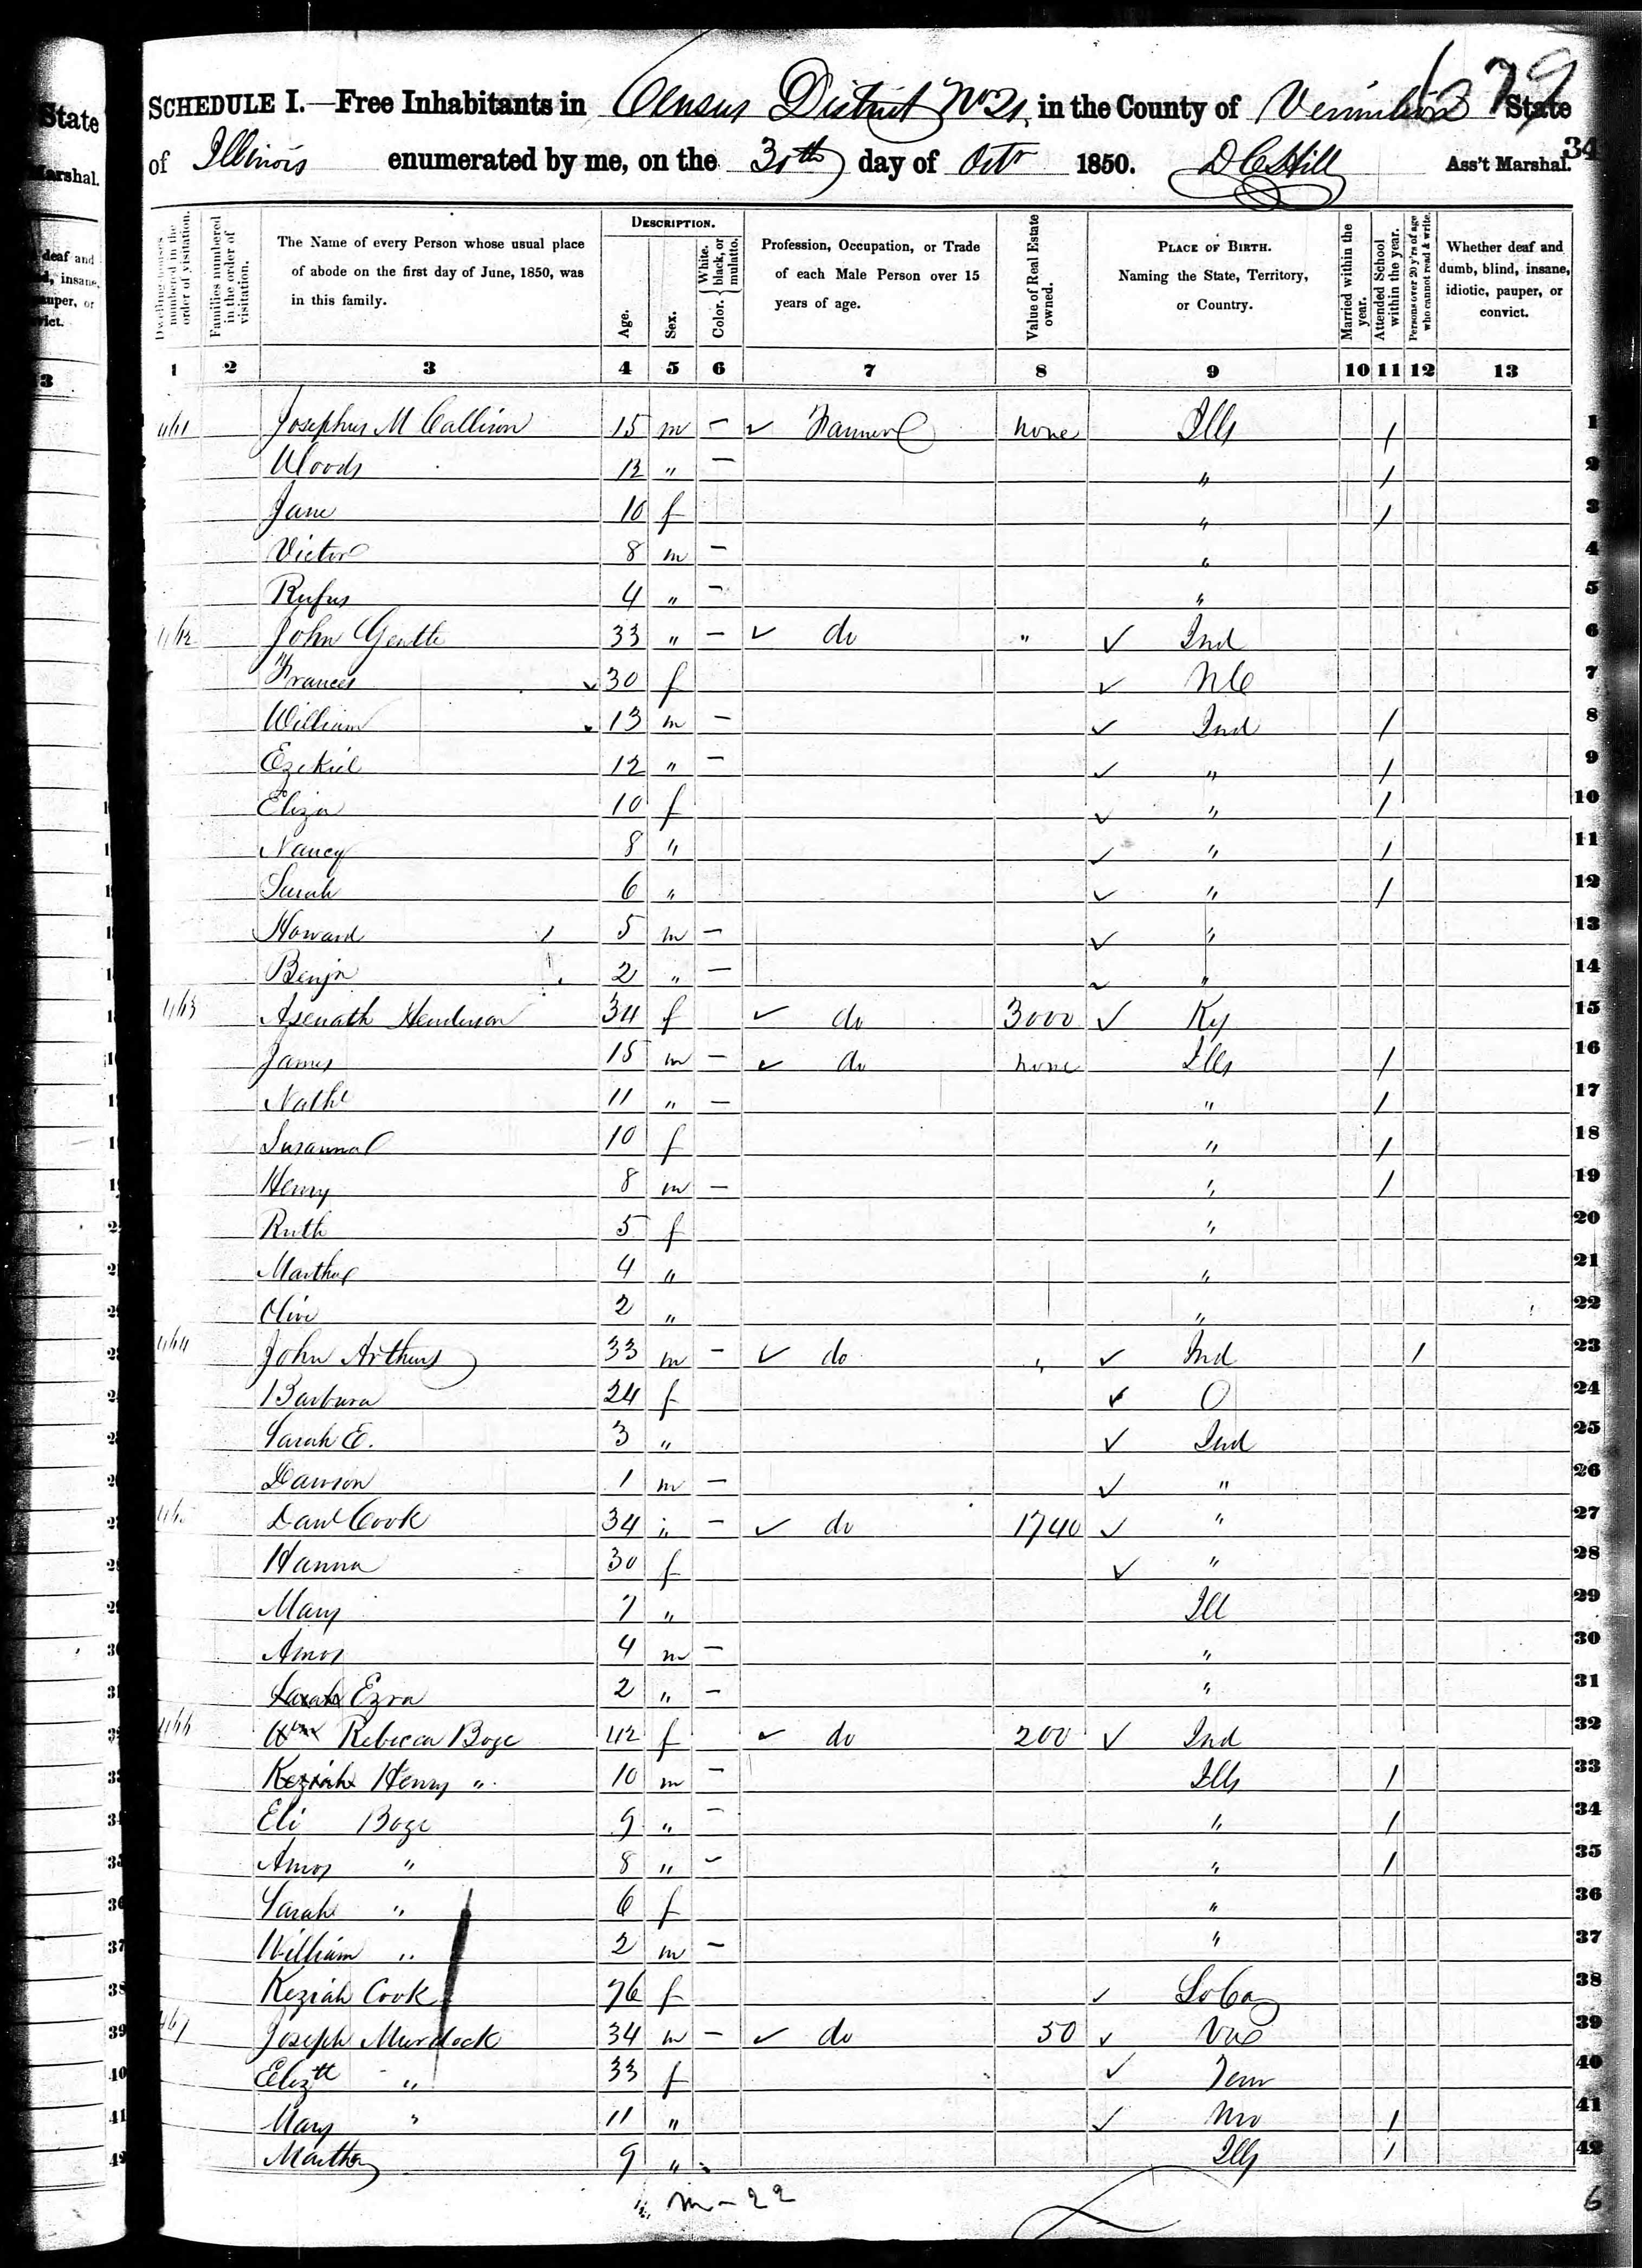 1379
SCHEDULE I.—Free Inhabitants in Census District No 21, in the County of Vermilion State
of Illinois enumerated by me, on the 30th day of Octr 1850. D C Hill Ass't Marshal.
34
Dwelling-houses numbered in the order of visitation.
Families numbered in the order of visitation.
The Name of every Person whose usual place of abode on the first day of June, 1850, was in this family.
DESCRIPTION.
Age.
Sex.
Color. { White, black, or mulatto.
Profession, Occupation, or Trade of each Male Person over 15 years of age.
Value of Real Estate owned.
PLACE OF BIRTH. Naming the State, Territory, or Country.
Married within the year.
Attended School within the year.
Persons over 20 y'rs of age who cannot read & write.
Whether deaf and dumb, blind, insane, idiotic, pauper, or convict.
1 2 3 4 5 6 7 8 9 10 11 12 13
461 Josephus M Callison 15 m – ✓ Farmer none Ills / 1
Woods 12 " – " / 2
Jane 10 f " / 3
Victor 8 m – " 4
Rufus 4 " – " 5
462 John Gentle 33 " – ✓ do " ✓ Ind 6
Frances ✓ 30 f ✓ NC 7
William 13 m – ✓ Ind / 8
Ezekiel 12 " – ✓ " / 9
Eliza 10 f ✓ " / 10
Nancy 8 " ✓ " / 11
Sarah 6 " ✓ " / 12
Howard 5 m – ✓ " 13
Benjn 2 " – ✓ " 14
463 Asenath Henderson 34 f ✓ do 3000 ✓ Ky 15
James 15 m – ✓ do none Ills / 16
Nathl 11 " – " / 17
Susanna 10 f " / 18
Henry 8 m – " / 19
Ruth 5 f " 20
Martha 4 " " 21
Olive 2 " " 22
464 John Arthurs 33 m – ✓ do " ✓ Ind / 23
Barbara 24 f ✓ O 24
Sarah E. 3 " ✓ Ind 25
Dawson 1 m – ✓ " 26
465 Danl Cook 34 " – ✓ do 1740 ✓ " 27
Hanna 30 f ✓ " 28
Mary 7 " Ill 29
Amos 4 m – " 30
Sarah Ezra 2 " – " 31
466 Wm Rebecca Boge 42 f ✓ do 200 ✓ Ind 32
Keziah Henry " 10 m – Ills / 33
Eli Boge 9 " – " / 34
Amos " 8 " – " / 35
Sarah " 6 f " 36
William " 2 m – " 37
Keziah Cook 76 f ✓ So Ca 38
467 Joseph Murdock 34 m – ✓ do 50 ✓ Va 39
Elizth " 33 f ✓ Tenn 40
Mary " 11 " ✓ Mo / 41
Martha 9 " Ills / 42
m – 22
6